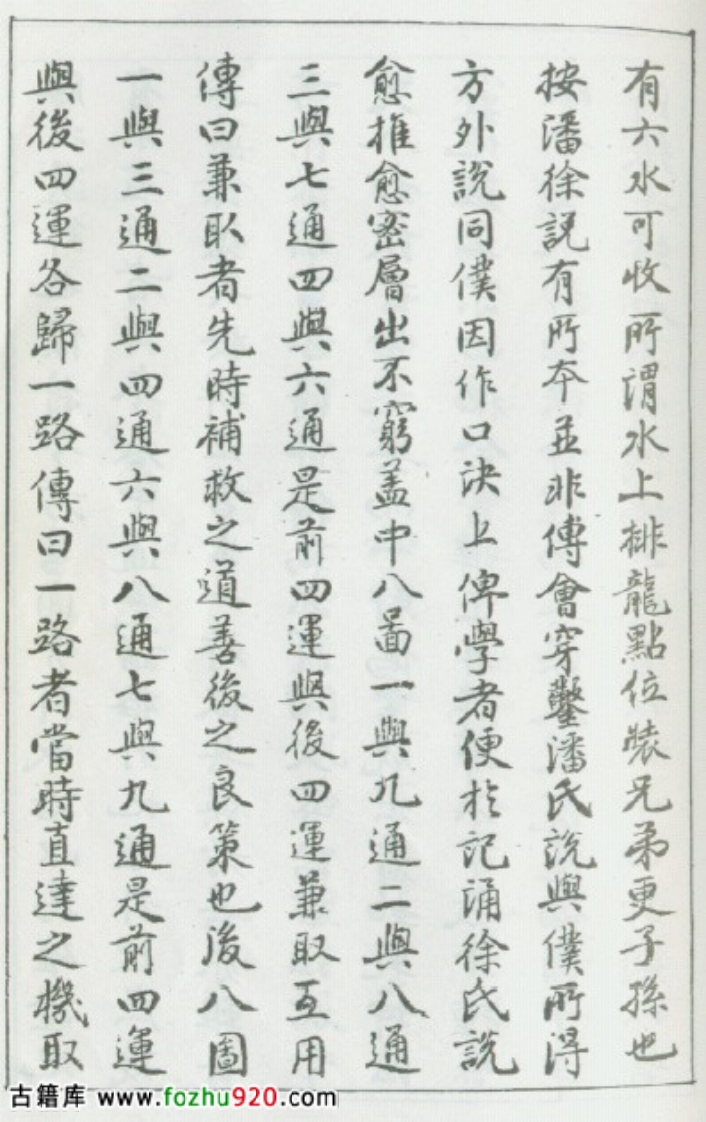 有六水可收所謂水上排龍點位裝兄弟更子孫也
按潘徐説有所本並非傅會穿鑿潘氏説與僕所得
方外説同僕因作口決上俾學者便於記誦徐氏説
愈推愈密層出不窮盖中八啚一與九通二與八通
三與七通四與六通是前四運與後四運兼取互用
傳曰兼取者先時補救之道善後之良策也後八圖
一與三通二與四通六與八通七與九通是前四運
與後四運各歸一路傳曰一路者當時直達之機取
古籍库 www.fozhu920.com